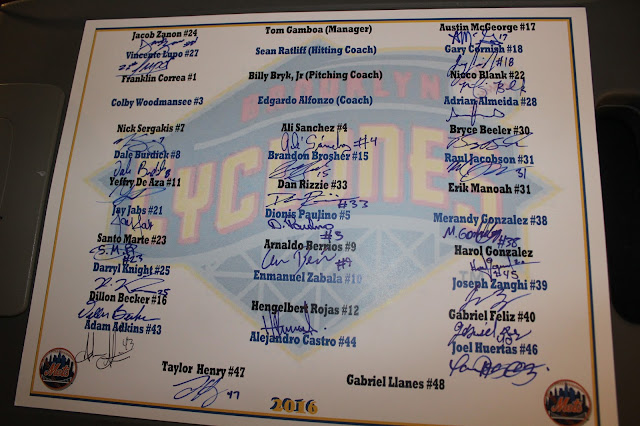 Jacob Zanon #24 Tom Gamboa (Manager) Austin McGeorge #17
Vincente Lupo #27 Sean Ratliff (Hitting Coach) Gary Cornish #18
#18
Franklin Correa #1 Billy Bryk, Jr (Pitching Coach) Nicco Blank #22
Colby Woodmansee #3 Edgardo Alfonzo (Coach) Adrian Almeida #28
BROOKLYN
Nick Sergakis #7 Ali Sanchez #4 Bryce Beeler #30
Ali Sanchez #4
Dale Burdick #8 Brandon Brosher #15 Raul Jacobson #31
15 31
Yeffry De Aza #11 Dan Rizzie #33 Erik Manoah #31
#33
CYCLONES
Jay Jabs #21 Dionis Paulino #5 Merandy Gonzalez #38
D. Paulino M. Gonzalez #38
#5
Santo Marte #23 Arnaldo Berrios #9 Harol Gonzalez
#23 #9 #45
Darryl Knight #25 Enmanuel Zabala #10 Joseph Zanghi #39
25
Dillon Becker #16 Hengelbert Rojas #12 Gabriel Feliz #40
Adam Adkins #43 Alejandro Castro #44 Joel Huertas #46
43
Taylor Henry #47 Gabriel Llanes #48
47
Mets 2016 Mets